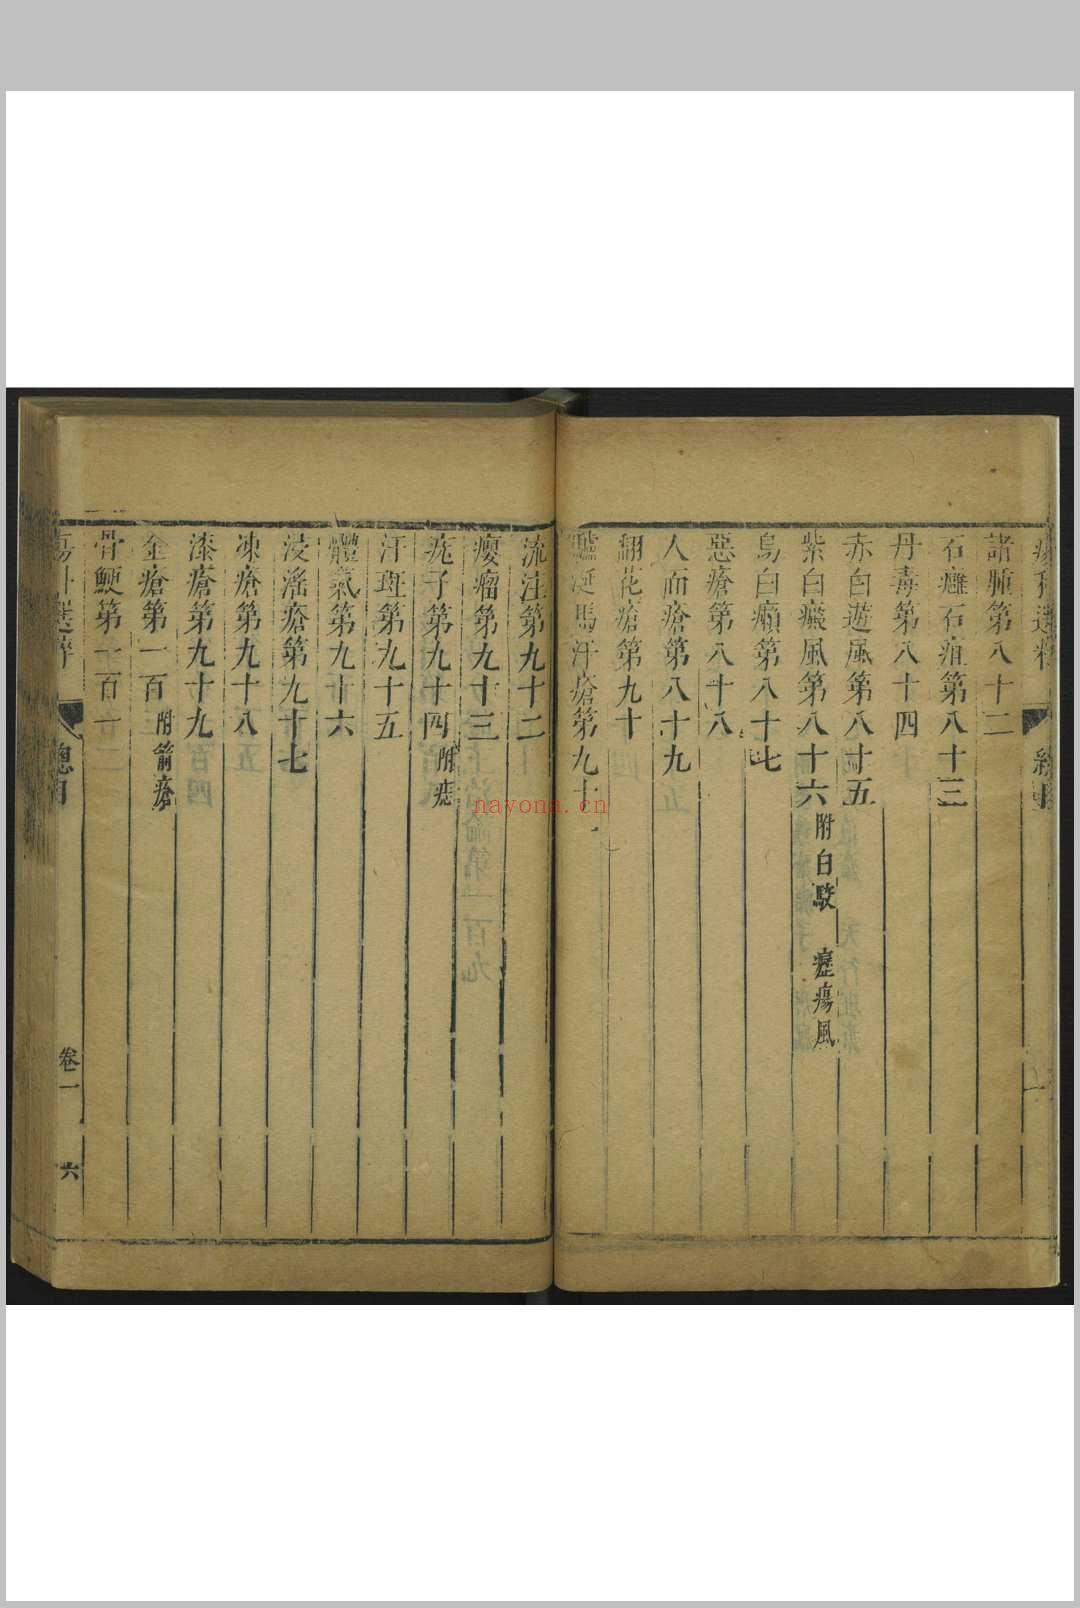 諸腫第八十二
石癰石疽第八十三
丹毒第八十四
赤白遊風第八十五
紫白癜風第八十六 附白駮 癧瘍風
烏白癩第八十七
惡瘡第八十八
人面瘡第八十九
翻花瘡第九十
驢涎馬汗瘡第九十
流注第九十二
癭瘤第九十三
疣子第九十四 附痣
汗斑第九十五
體氣第九十六
浸淫瘡第九十七
凍瘡第九十八
漆瘡第九十九
金瘡第一百 附箭瘡
骨鯁第一百
瘍科選粹 總目 卷一 六
nayona.cn